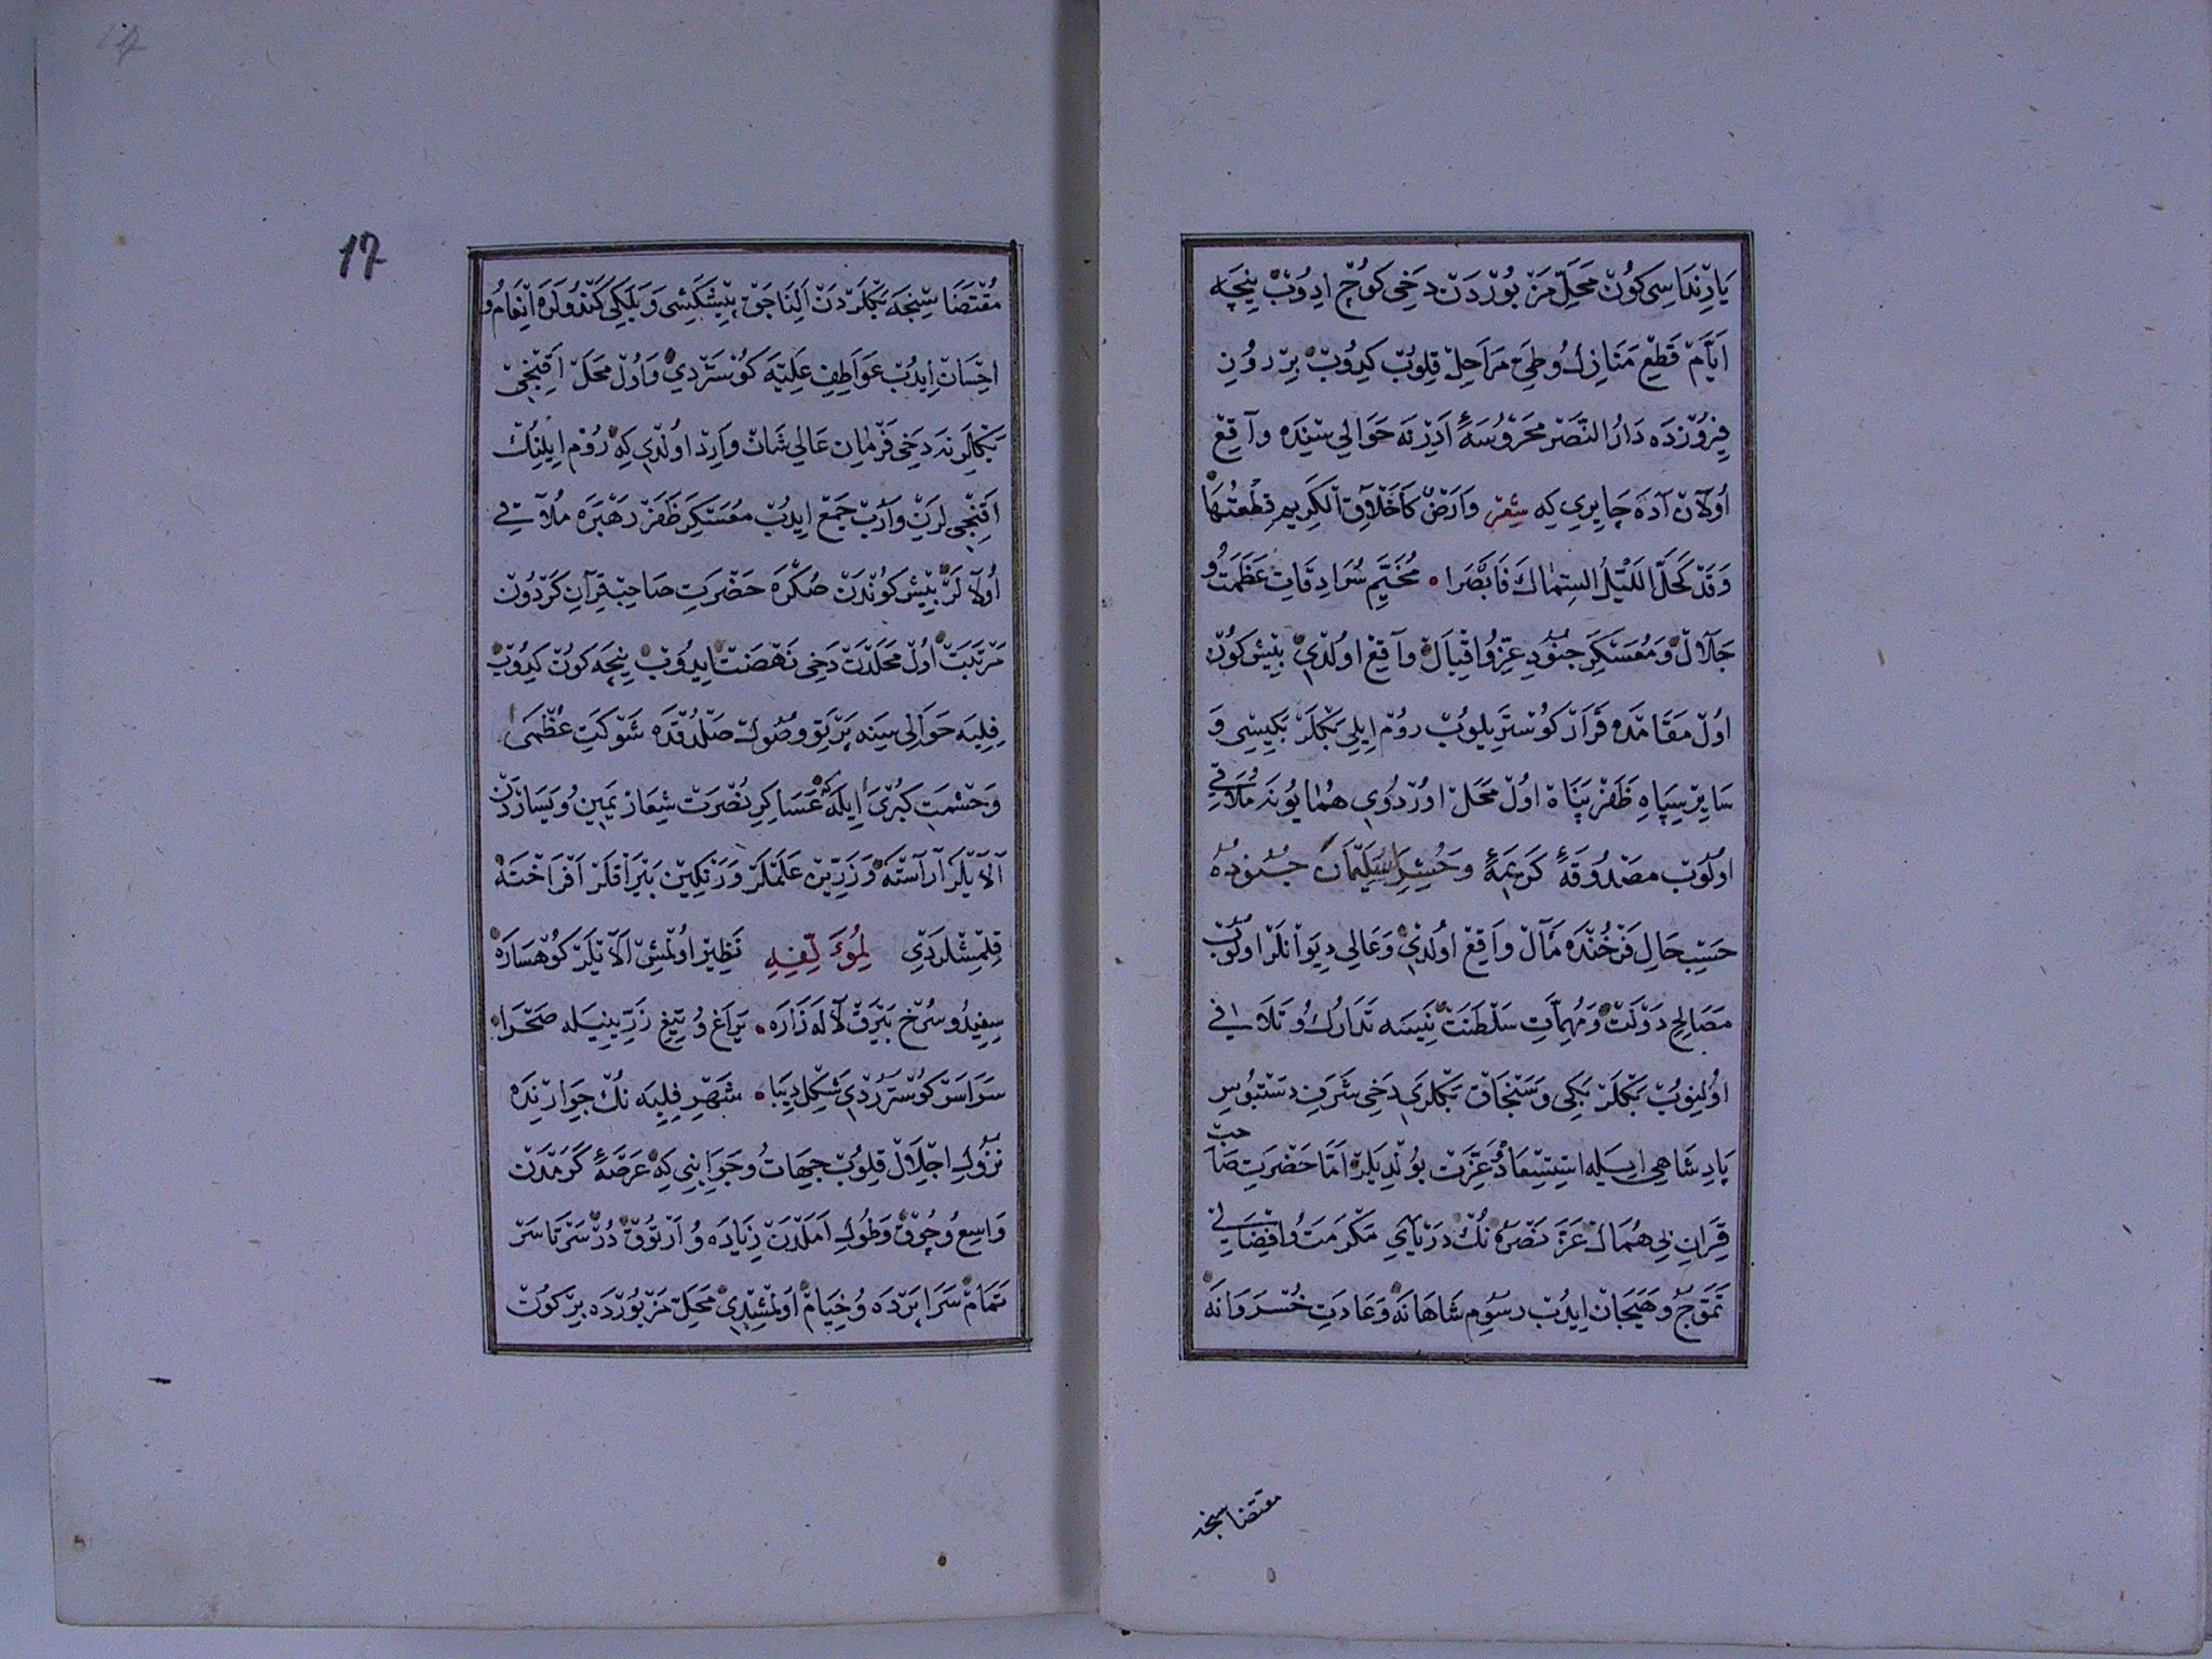 يارنداسى كون محل مزبوردن دخى كوچ ايدوب نيجه
ايام قطع منازل وطى مراحل قلوب كيدوب بر روز
فيروزده دار النصر محروسهٔ ادرنه حوالى سنده واقع
اولان آده چايرى كه شعر وارض كاخلاق الكريم قطعتها
وقد كحل الليل السماك فابصرا مخيم سرادقات عظمت و
جلال ومعسكر جنود عز واقبال واقع اولدى بش كون
اول مقامده قرار كوستريلوب روم ايلى بكلر بكيسى و
ساير سپاه ظفر پناه اول محل اوردوى همايونه ملاقى
اولوب مصدوقهٔ كريمهٔ وحشر لسليمان جنوده
حسب حال فرخنده مآل واقع اولدى وعالى ديوانلر اولوب
مصالح دولت ومهمات سلطنت نيسه تدارك وتلافى
اولنوب بكلر بكى وسنجاق بكلرى دخى شرف دستبوس
پادشاهى ايله استسعاد وعزت بولديلر اما حضرت صاحب
قران بى همال عز نصره نك درياى مكرمت وافضالى
تموج وهيجان ايدب رسوم شاهانه وعادت خسروانه
مقتضاسنجه
17
مقتضاسنجه بكلردن الناجق پيشكشى وبلكى كندولره انعام و
احسان ايدب عواطف عليه كوستردى واول محل اقنجى
بكلرينه دخى فرمان عالى شان وارد اولدى كه روم ايلنك
اقنجى لرين وارب جمع ايدب معسكر ظفر رهبره ملاقى
اولالر بش كوندن صكره حضرت صاحب قران كردون
مرتبت اول محلدن دخى نهضت ايدوب نيجه كون كيدوب
فلبه حوالى سينه پرتو وصول صلدقده شوكت عظمى
وحشمت كبرى ايله عساكر نصرت شعار يمين ويساردن
آلايلر آراسته وزرين علملر ورنكين بيراقلر افراخته
قلمشلردى لمؤلفه نظير اولمش الايلر كوهساره
سفيد وسرخ بيرق لاله زاره يراغ وتيغ زرينيله صحرا
سراسر كوسترردى شكل ديبا شهر فلبه نك جوارنده
نزول اجلال قلوب جهات وجوانبى كه عرصهٔ كرمدن
واسع وچوق وطول املدن زياده وارتوق در سرتاسر
تمام سراپرده وخيام اولمشدى محل مزبورده بر كون